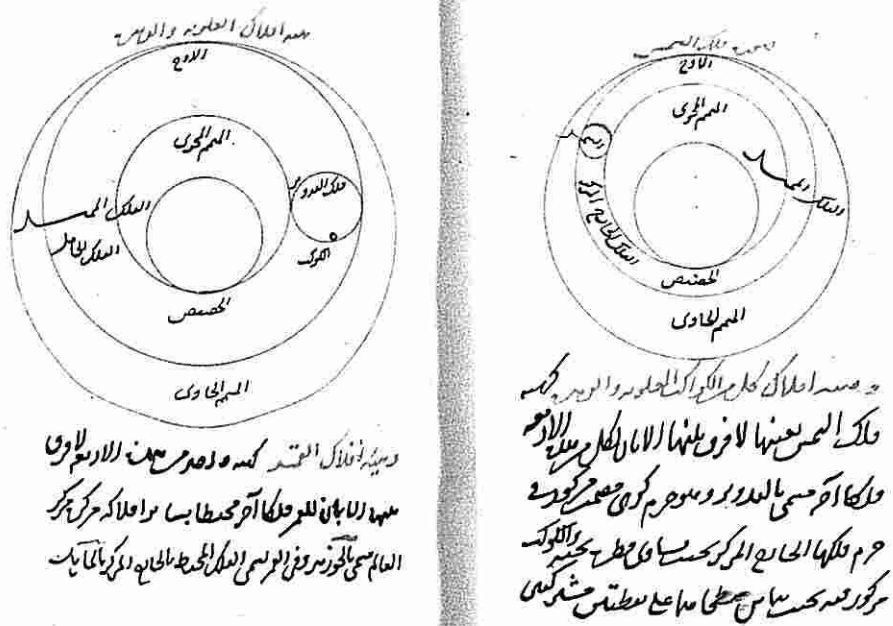 هيئة فلك الشمس
الاوج
المتمم المحوى
الشمس
الفلك الممثل
الفلك الخارج المركز
الحضيض
المتمم الحاوى
وهيئة افلاك كل من الكواكب العلوية والزهرة كهيئة
فلك الشمس بعينها لا فرق بينها الا بان لكل من هذه الاربعة
فلكا آخر مسمى بالتدوير وهو جرم كرى مصمت مركوز فى
جرم فلكها الخارج المركز بحيث يساوى قطره والكوكب
مركوز فيه بحيث يماس سطحاهما على نقطة مشتركة
هيئة افلاك العلوية والزهرة
الاوج
المتمم المحوى
فلك التدوير
الكوكب
الفلك الممثل
الفلك الحامل
الحضيض
المتمم الحاوى
وهيئة افلاك القمر كهيئة واحد من هذه الاربعة لا فرق
بينها الا بان للقمر فلكا آخر محيطا بسائر افلاكه مركزه مركز
العالم مسمى بالجوزهر وفى القمر سمى الفلك المحيط بالخارج المركز بالمايل